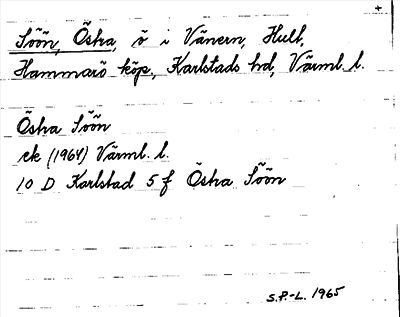 +
Söön, Östra, ö i Vänern, Hult,
Hammarö köp., Karlstads hd, Värml. l.
Östra Söön
ek (1964) Värml. l.
10 D Karlstad 5 f Östra Söön
S.P.-L. 1965